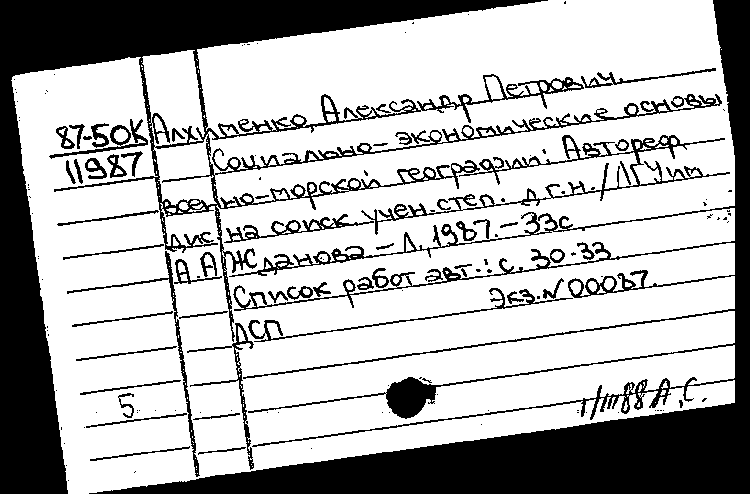 87-50К Алхименко, Александр Петрович.
11987 Социально-экономические основы
военно-морской географии: Автореф.
дис. на соиск. учен. степ. д.г.н. / ЛГУ им.
А.А Жданова. - Л., 1987. - 33с.
Список работ авт.: с. 30-33.
ДСП Экз. N 00087.
5
1/III 88 А.С.